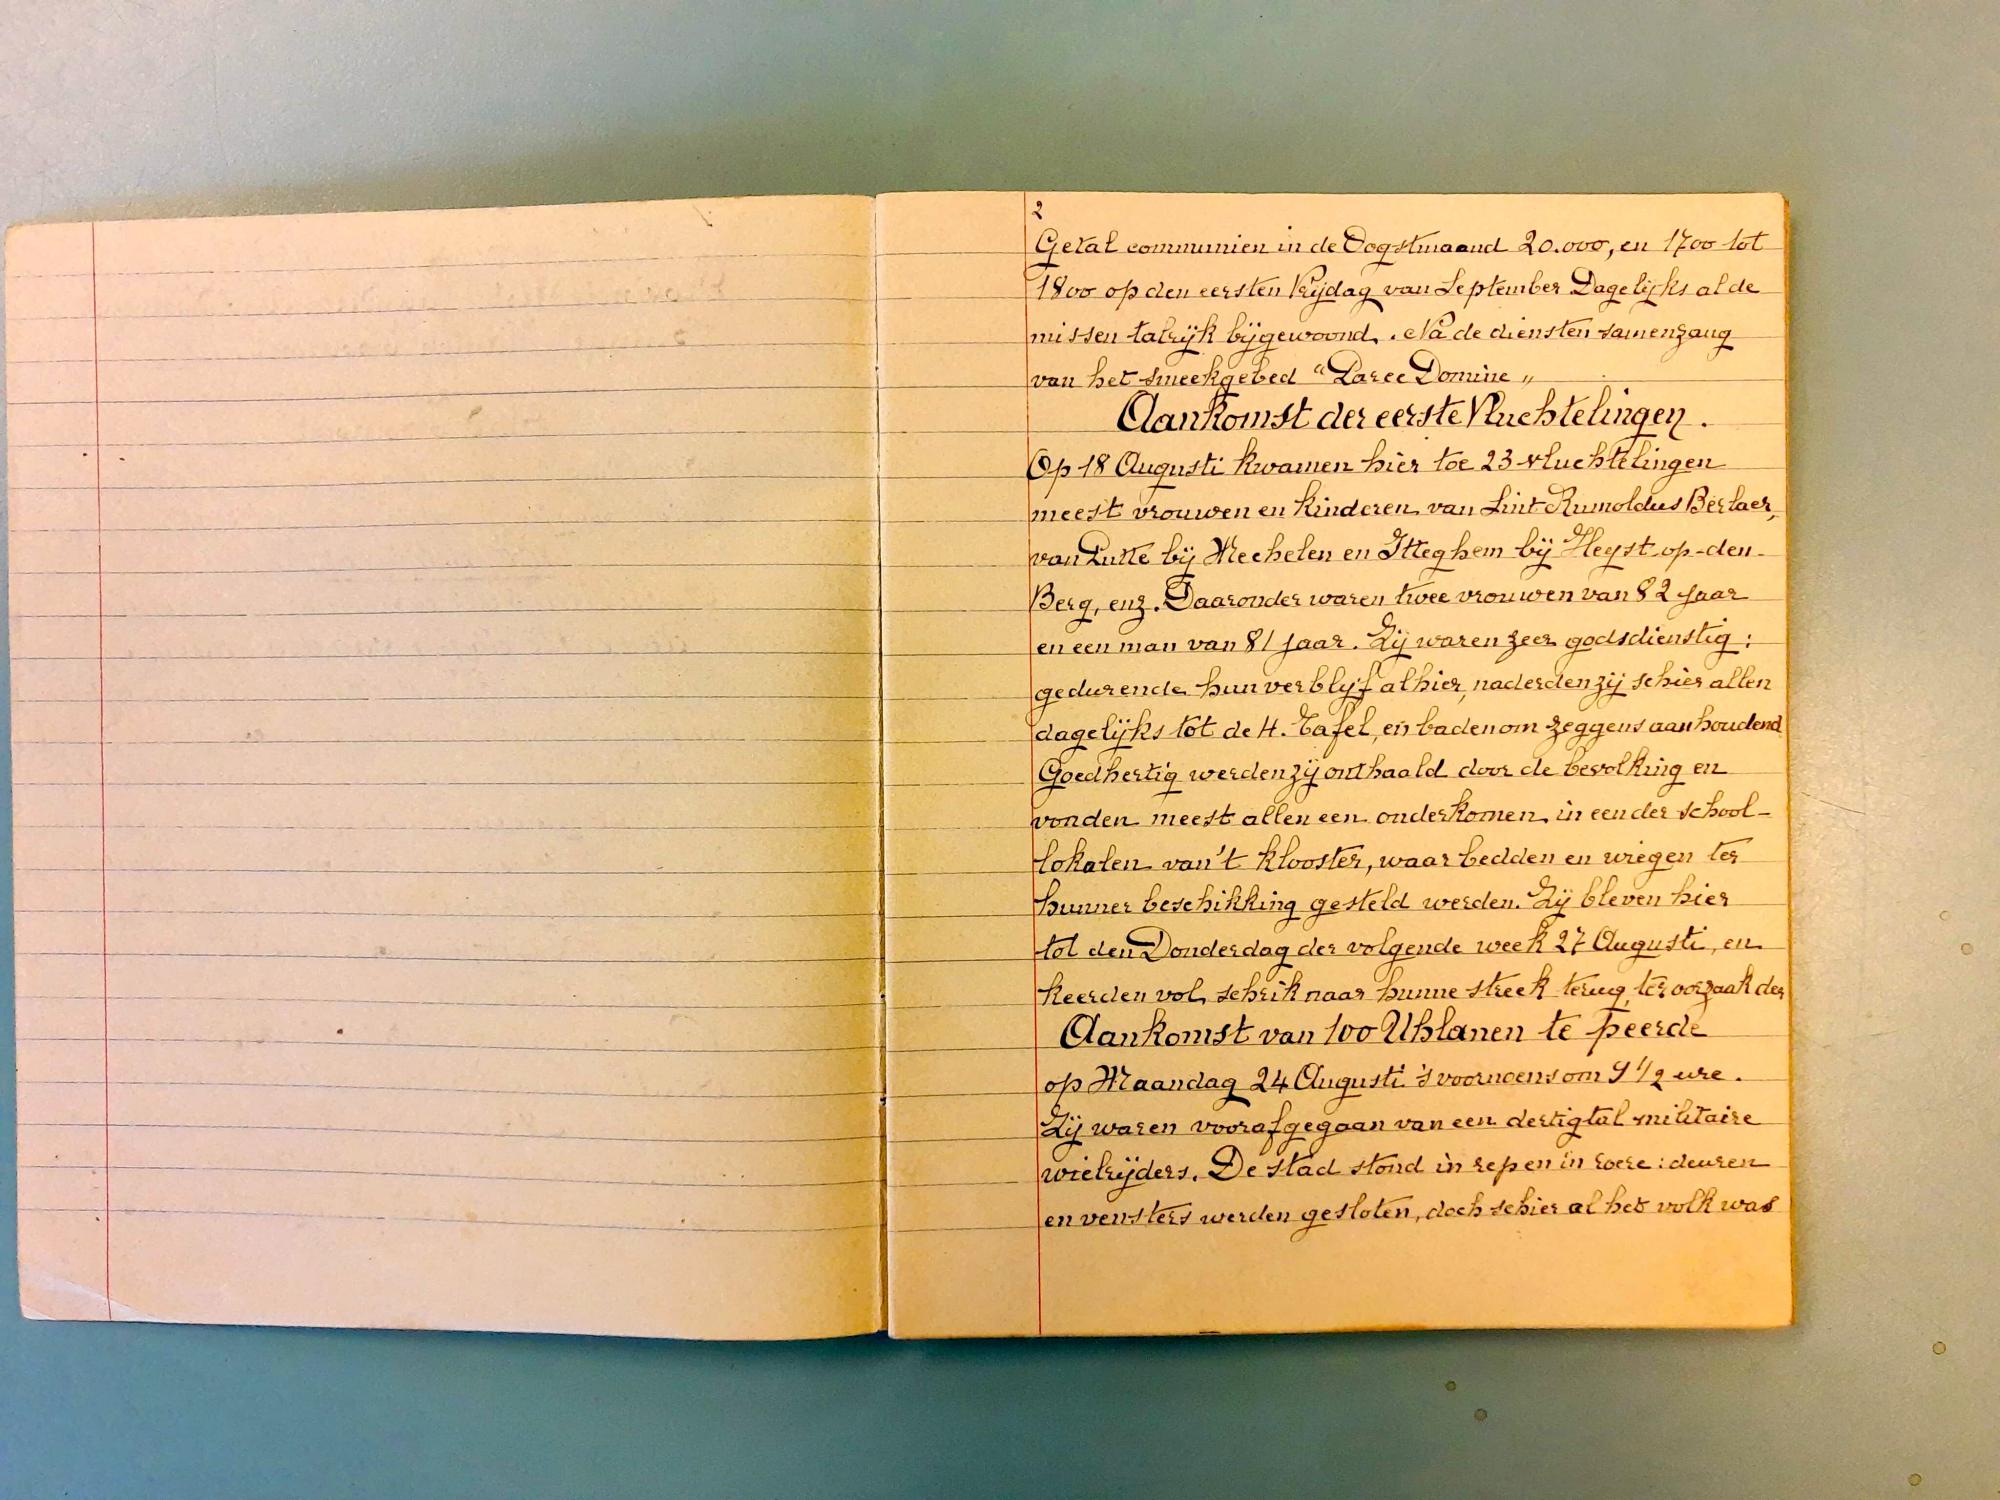 2
Getal communien in de Oogstmaand 20.000, en 1700 tot
1800 op den eersten Vrijdag van September Dagelijks al de
missen talrijk bijgewoond. Na de diensten samenzang
van het smeekgebed "Parce Domine"
Aankomst der eerste Vluchtelingen.
Op 18 Augusti kwamen hier toe 23 vluchtelingen
meest vrouwen en kinderen van Sint Rumoldus Berlaer,
van Putte bij Mechelen en Itteghem bij Heyst-op-den-
Berg, enz. Daaronder waren twee vrouwen van 82 jaar
en een man van 81 jaar. Zij waren zeer godsdienstig:
gedurende hun verblijf alhier, naderden zij schier allen
dagelijks tot de H. Tafel, en baden om zeggens aanhoudend
Goedhertig werden zij onthaald door de bevolking en
vonden meest allen een onderkomen in een der school-
lokalen van 't klooster, waar bedden en wiegen ter
hunner beschikking gesteld werden. Zij bleven hier
tot den Donderdag der volgende week 27 Augusti, en
keerden vol schrik naar hunne streek terug, ter oorzaak der
Aankomst van 100 Uhlanen te peerde
op Maandag 24 Augusti 's voornoens om 9 1/2 ure.
Zij waren voorafgegaan van een dertigtal militaire
wielrijders. De stad stond in rep en in roere: deuren
en vensters werden gesloten, doch schier al het volk was